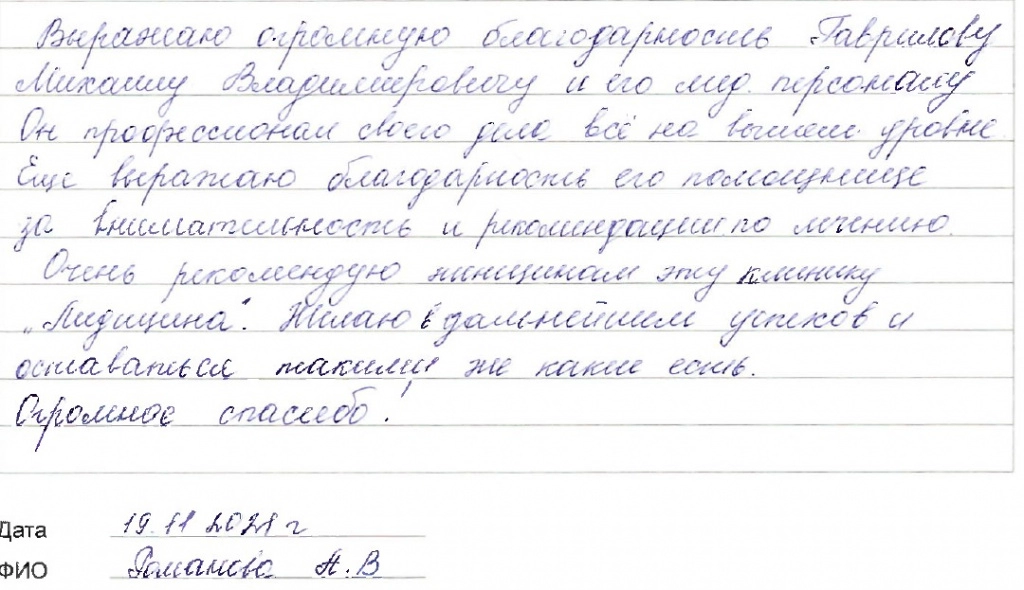 Выражаю огромную благодарность Гаврилову
Михаилу Владимировичу и его мед. персоналу
Он профессионал своего дела всё на высшем уровне.
Еще выражаю благодарность его помощнице
за внимательность и рекомендации по лечению.
Очень рекомендую женщинам эту клинику
„Лидицина". Желаю в дальнейшем успехов и
оставаться такими же какие есть.
Огромное спасибо!
Дата 19.11 2021 г
ФИО Романова А.В